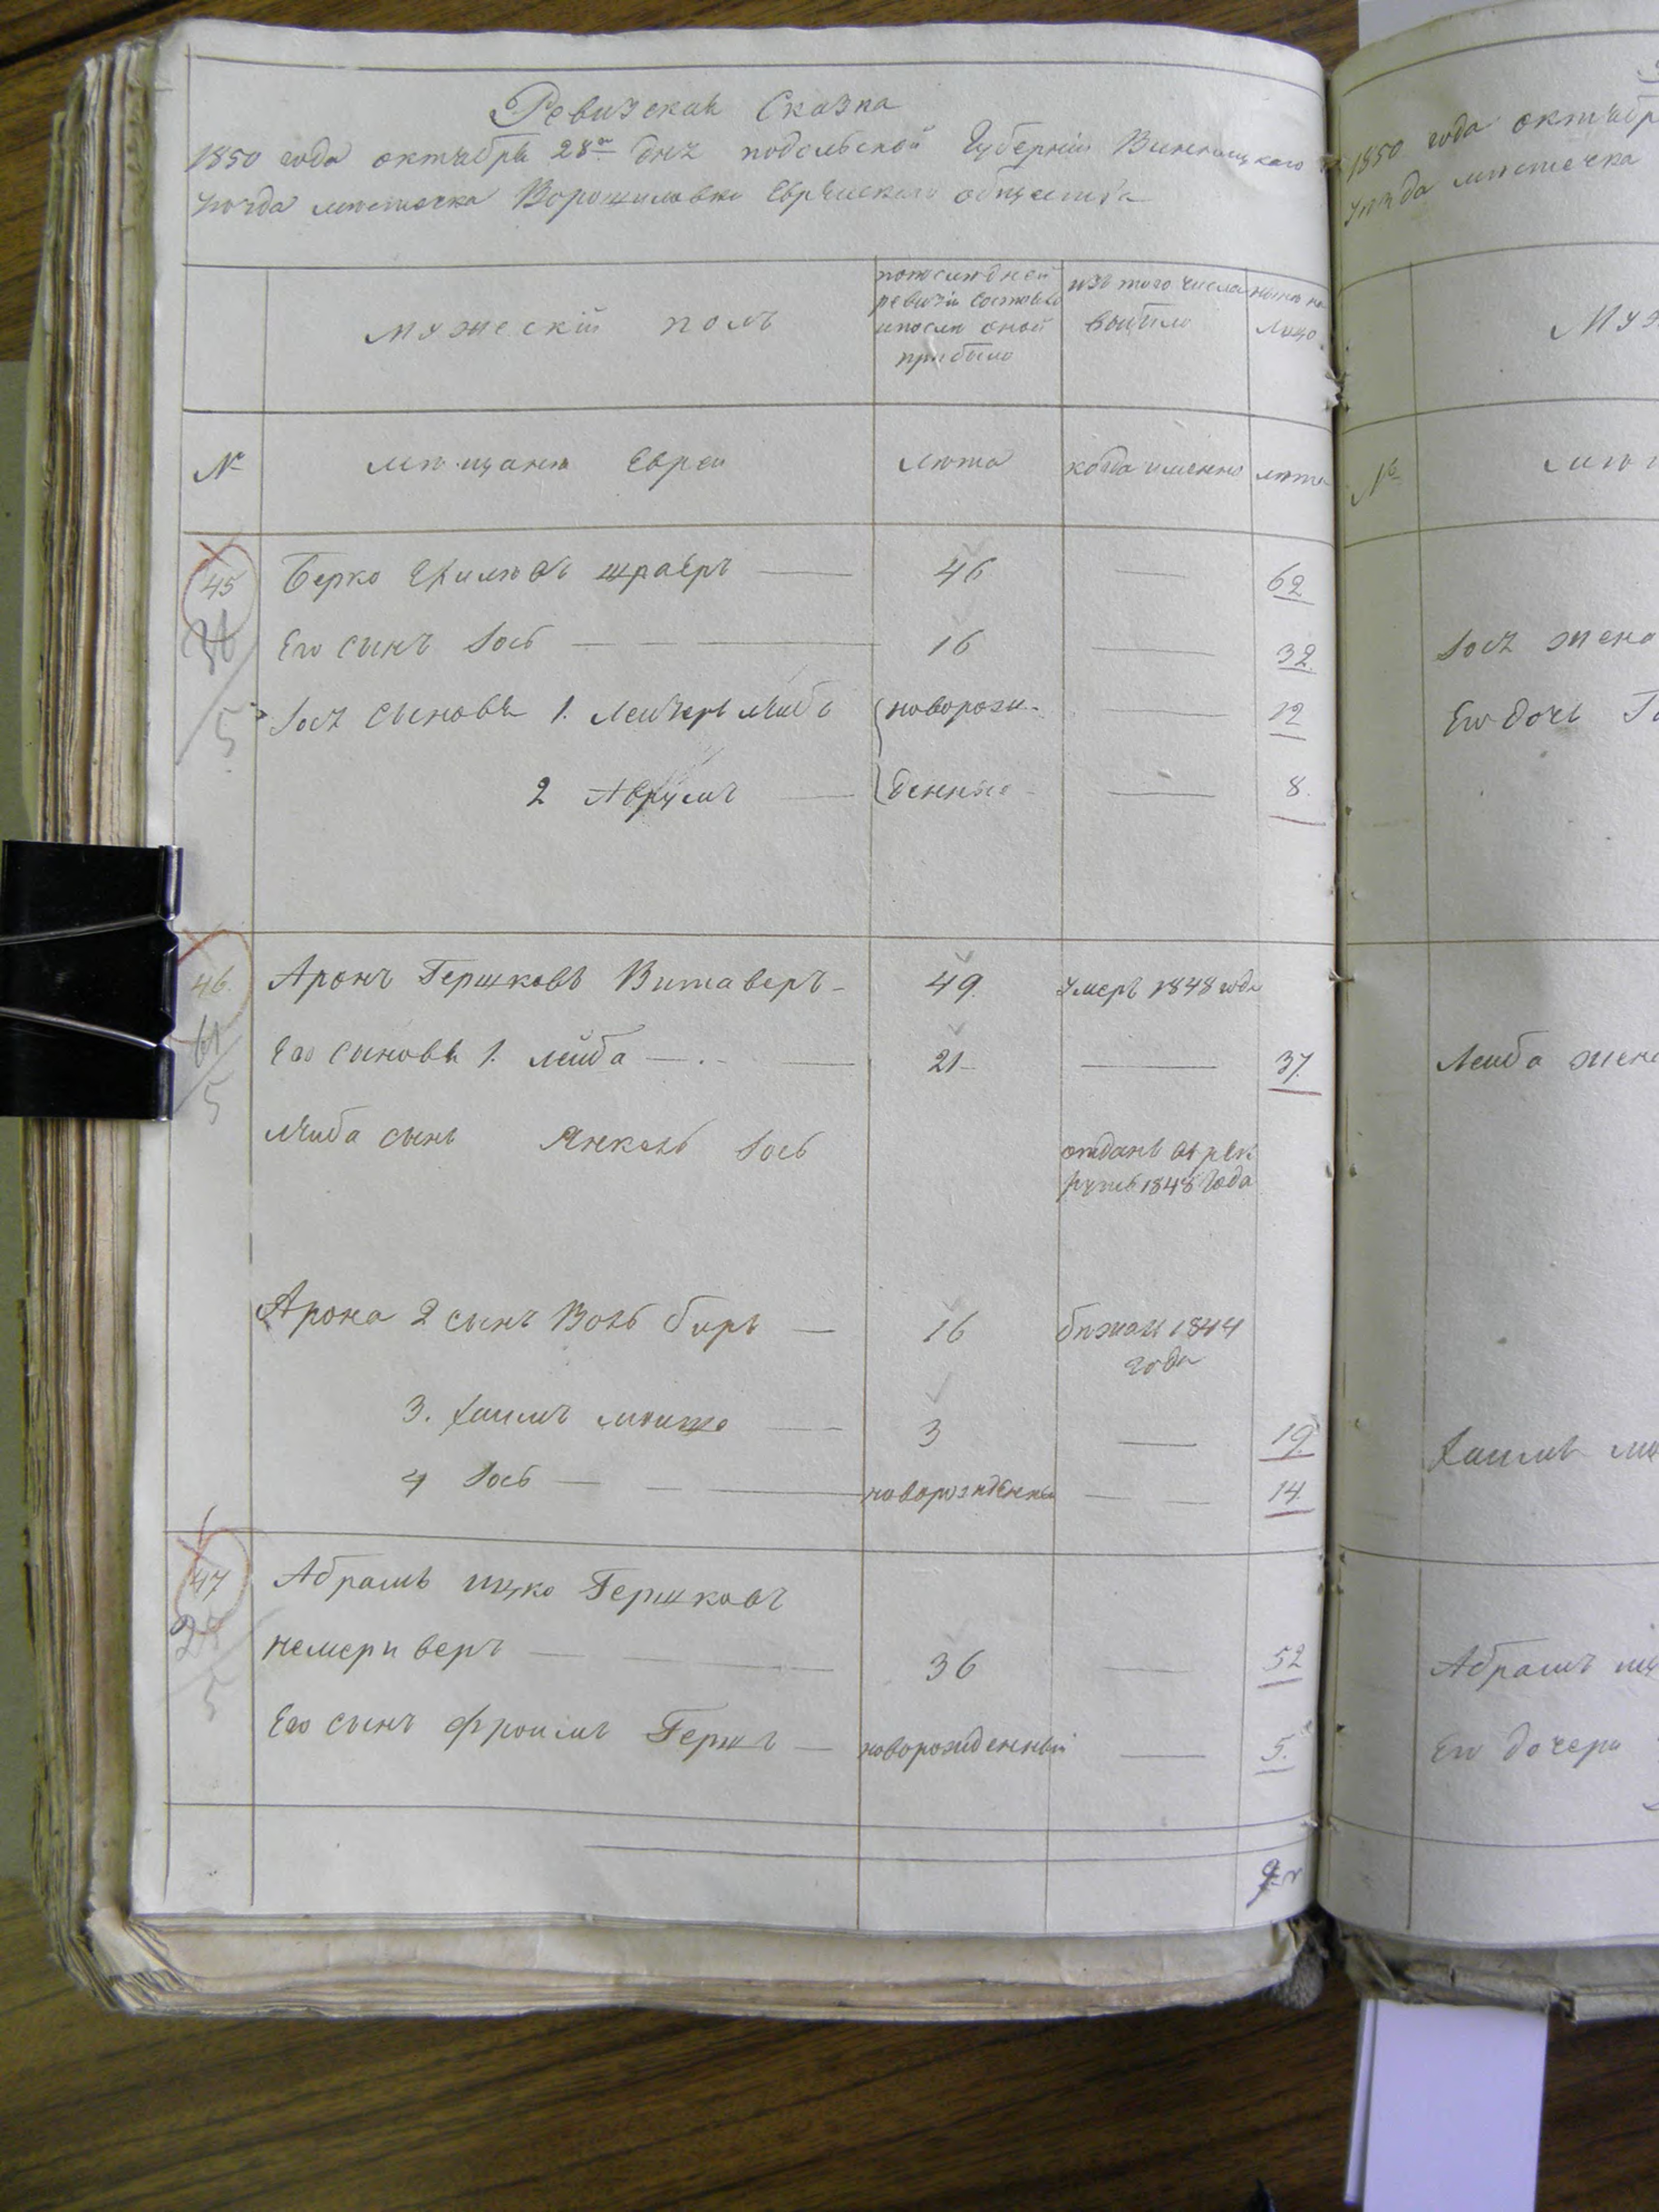 Ревизская Сказка
1850 года октября 28го дня подольской Губерніи Винницкаго
уѣзда мѣстечка Ворошиловки Еврейскаго общества
мужескій полъ
попослѣдней ревизіи состояло ипослѣ оной прибыло
изъ того числа выбыло
нынѣ на лицо
№ мѣщанѣ Евреи лѣта когда именно лѣта
45 Берко Ехилювъ шраеръ — 46 — 62
30 Его сынъ Іось — 16 — 32
5 Іося сыновья 1. Лейзеръ Лейбъ новорож- — 12
2 Аврумъ — денные — 8.
46. Аронъ Гершковъ Витаверъ - 49. умеръ 1848 года
61 Его сыновья 1. лейба — 21 — 37.
5
лейба сынъ Янкель Іось отданъ въ рек
рутъ 1848 Года
Арона 2 сынъ Воль беръ — 16 бѣжал 1844
года
3. Хаимъ мошко — 3 — 19
4 Іось — новорожденны — 14.
47 Абрамъ ицко Гершковъ
немериверъ — 36 — 52
5
Его сынъ фроимъ Гершъ — новорожденный — 5.
9
1850 года октябр
уѣзда мѣстечка
Муж
№
Іося жена
Его дочь
Лейба жена
Хаимъ мо
Абрамъ иц
Его дочери